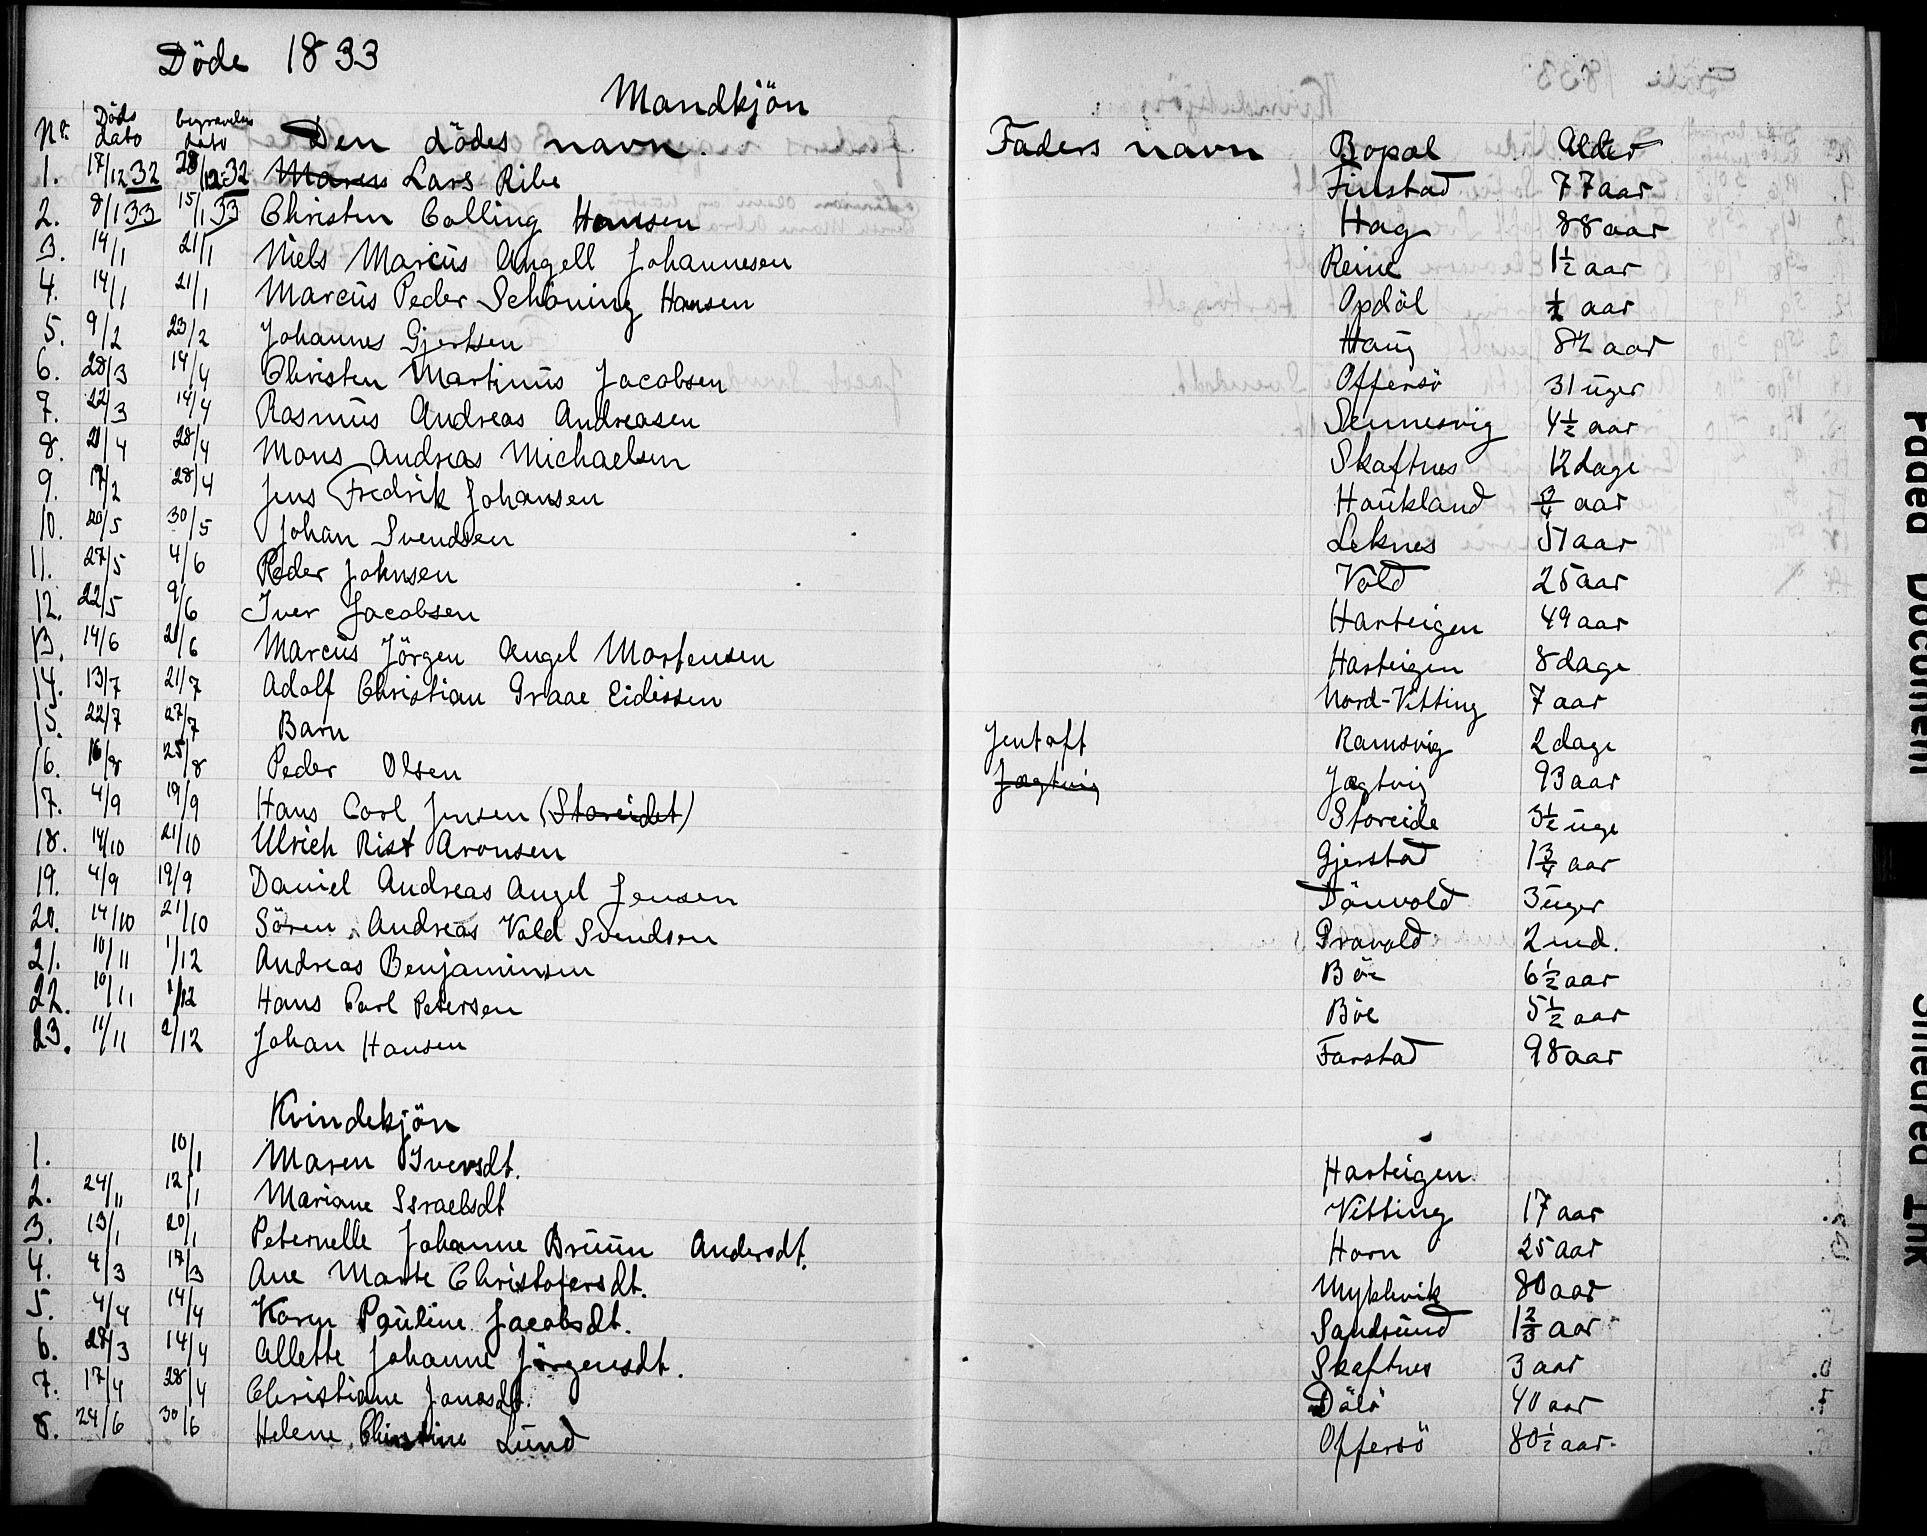 Döde 1833
Mandkjön
Nr. Döds dato begravelses dato Den dödes navn. Faders navn Bopæl Alder
1. 17/12 32 28/12 32 Lars Ribe Finstad 77 aar
2. 8/1 33 15/1 33 Christen Colling Hansen Hag 88 aar
3. 14/1 21/1 Niels Marcus Angell Johannesen Reine 1½ aar
4. 14/1 21/1 Marcus Peder Schöning Hansen Opdöl ½ aar
5. 9/2 23/2 Johannes Gjertsen Haug 82 aar
6. 28/3 14/4 Christen Martinus Jacobsen Offersö 31 uger
7. 22/3 14/4 Rasmus Andreas Andreasen Sennesvig 4½ aar
8. 21/4 28/4 Mons Andreas Michaelsen Skaftnes 12 dage
9. 17/2 28/4 Jens Fredrik Johansen Haukland ¾ aar
10. 20/5 30/5 Johan Svendsen Leknes 51 aar
11. 27/5 4/6 Peder Johnsen Vold 25 aar
12. 22/5 9/6 Iver Jacobsen Harteigen 49 aar
13. 14/6 21/6 Marcus Jörgen Angel Mortensen Harteigen 8 dage
14. 13/7 21/7 Adolf Christian Graae Eidissen Nord-Vitting 7 aar
15. 22/7 27/7 Barn Jentoft Ramsvig 2 dage
16. 16/8 25/8 Peder Olsen Jægtvig Jægtvig 93 aar
17. 4/9 19/9 Hans Carl Jensen (Storeidet) Storeide 3½ uge
18. 14/10 21/10 Ulrich Rist Aronsen Gjerstad 1¾ aar
19. 4/9 19/9 Daniel Andreas Angel Jensen Dönvold 3 uger
20. 14/10 21/10 Sören Andreas Vold Svendsen Pravold 2 md.
21. 10/11 1/12 Andreas Benjaminsen Böe 6½ aar
22. 10/11 1/12 Hans Carl Petersen Böe 5½ aar
23. 11/11 2/12 Johan Hansen Farstad 98 aar
Kvindekjön
1. 10/1 Maren Iversdt. Harteigen
2. 24/11 12/1 Mariane Israelsdt Vitting 17 aar
3. 13/1 20/1 Peternelle Johanne Bruun Andersdt. Horn 25 aar
4. 4/3 17/3 Ane Marte Christofersdt. Myklevik 80 aar
5. 4/4 14/4 Karen Pauline Jacobsdt. Sandsund 1⅔ aar
6. 28/3 14/4 Allette Johanne Jörgensdt. Skaftnes 3 aar
7. 17/4 28/4 Christiane Jonasdt. Dälö 40 aar
8. 24/6 30/6 Helene Christine Lund Offersö 80½ aar.
Faded Document
Smeared Ink